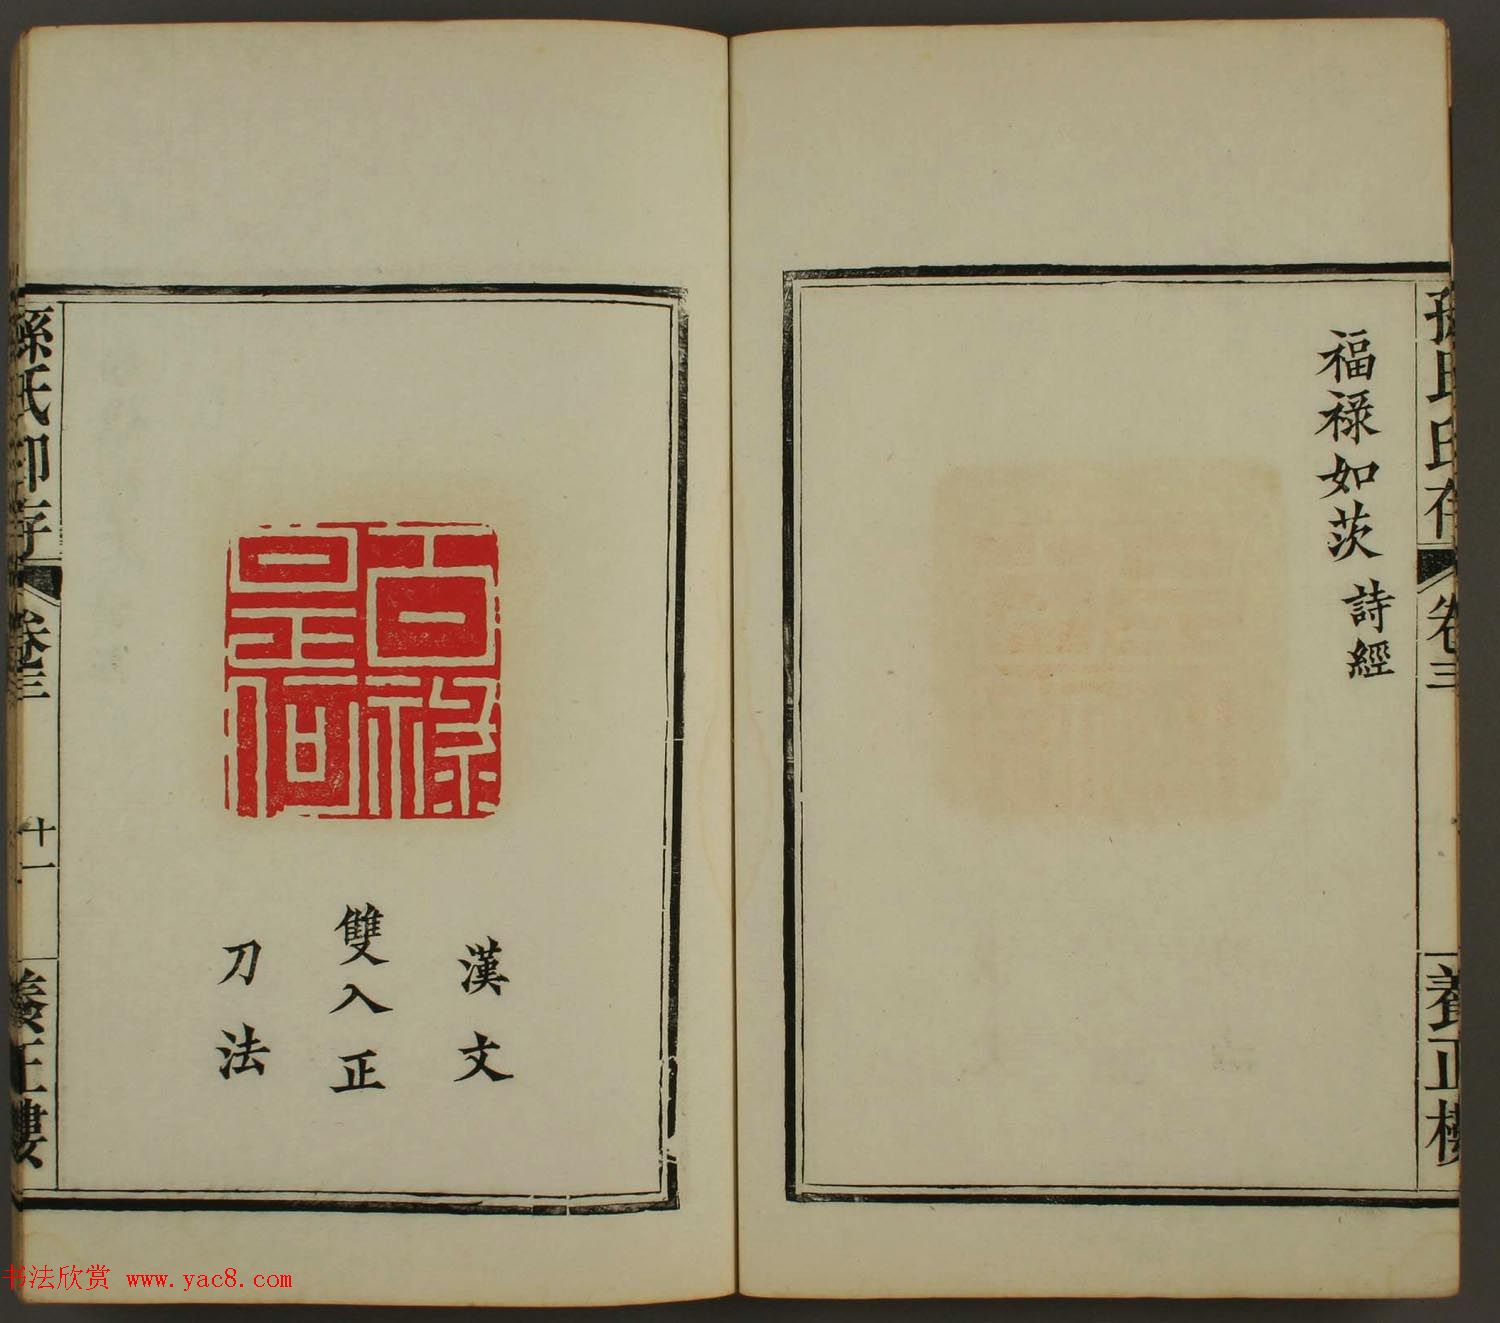 孫氏印存
卷三
養正樓
福祿如茨 詩經
百祿是何
漢文
雙入正
刀法
孫氏印存
卷三
十一
養正樓
书法欣赏 www.yac8.com